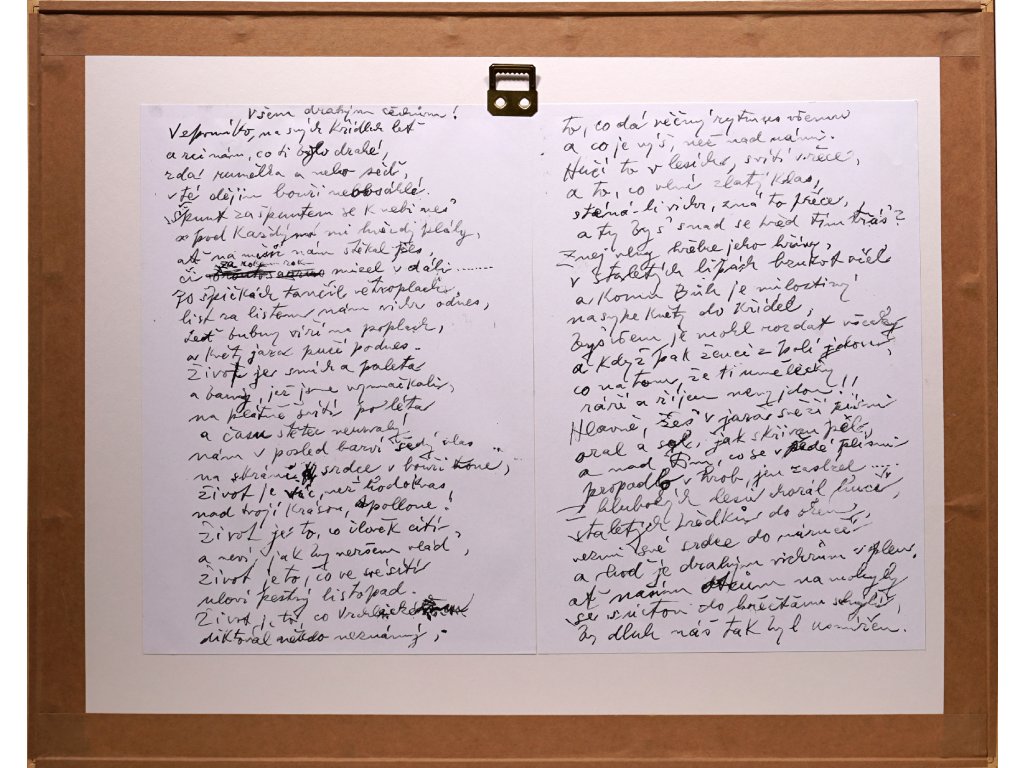 Všem drahým
Vzpomínko, na svých křídlech leť
a rci nám, co ti bylo drahé,
zda's ruměnka a nebo šeď,
v té dějin bouři neobsáhlé.
Špunt za špuntem se k nebi nes
a pod každým mi hvězdy plály,
ať na míše nám stékal ples,
za rokem rok
či mizel v dáli ........
Po špičkách tančil
list za listem nám vichr odnes,
leč bubny víří na poplach,
a květ jazev pučí podnes.
Život jen smír a paleta
a barvy, jež jsme vymačkali,
na plátně svítí po léta
a času štětec neuvalný
nám v posled barví šedý vlas
na stráni srdce v bouři
Život je víc, než hodokvas
nad tvojí krásou, Apollone!
Život je to, co člověk cítí,
a neví, jak by neršem vlád,
Život je to, co ve své síti
uloví pestrý listopad.
Život je to, co Vrchlického
diktoval někdo neznámý,
to, co dá věčný rytmus všemu
a co je výš, než nad námi.
Hučí to v lesích, svítí v řece,
a to, co vlní zlatý klas,
sténá-li vichr, zná to přece,
a ty bys snad se hřed tím třás?
Znej vlny hřbe jeho hřívy,
v staletých lipách bzukot včel
a komu Bůh je milostivý
nasype květy do křídel,
Bys všem je mohl rozdat všecky
a když pak ženci z polí jdou,
co na tom, že ti umělecky
září a říjen nevyjdou!!
Hlavně, žes v jaru svěží písni
oral a sel, jak skřivan pěl,
a nad tím, co se v šedé plísni
propadlo v hrob, jen zaslzel ....
Z hlubokých lesů chorál hučí,
staletých do oken,
vezmi své srdce do náručí
a hoď je drahým vichrům v plen.
ať našim otcům na mohyly
se snítou do břečťanu skryl,
by dluh náš tak byl usmířen.